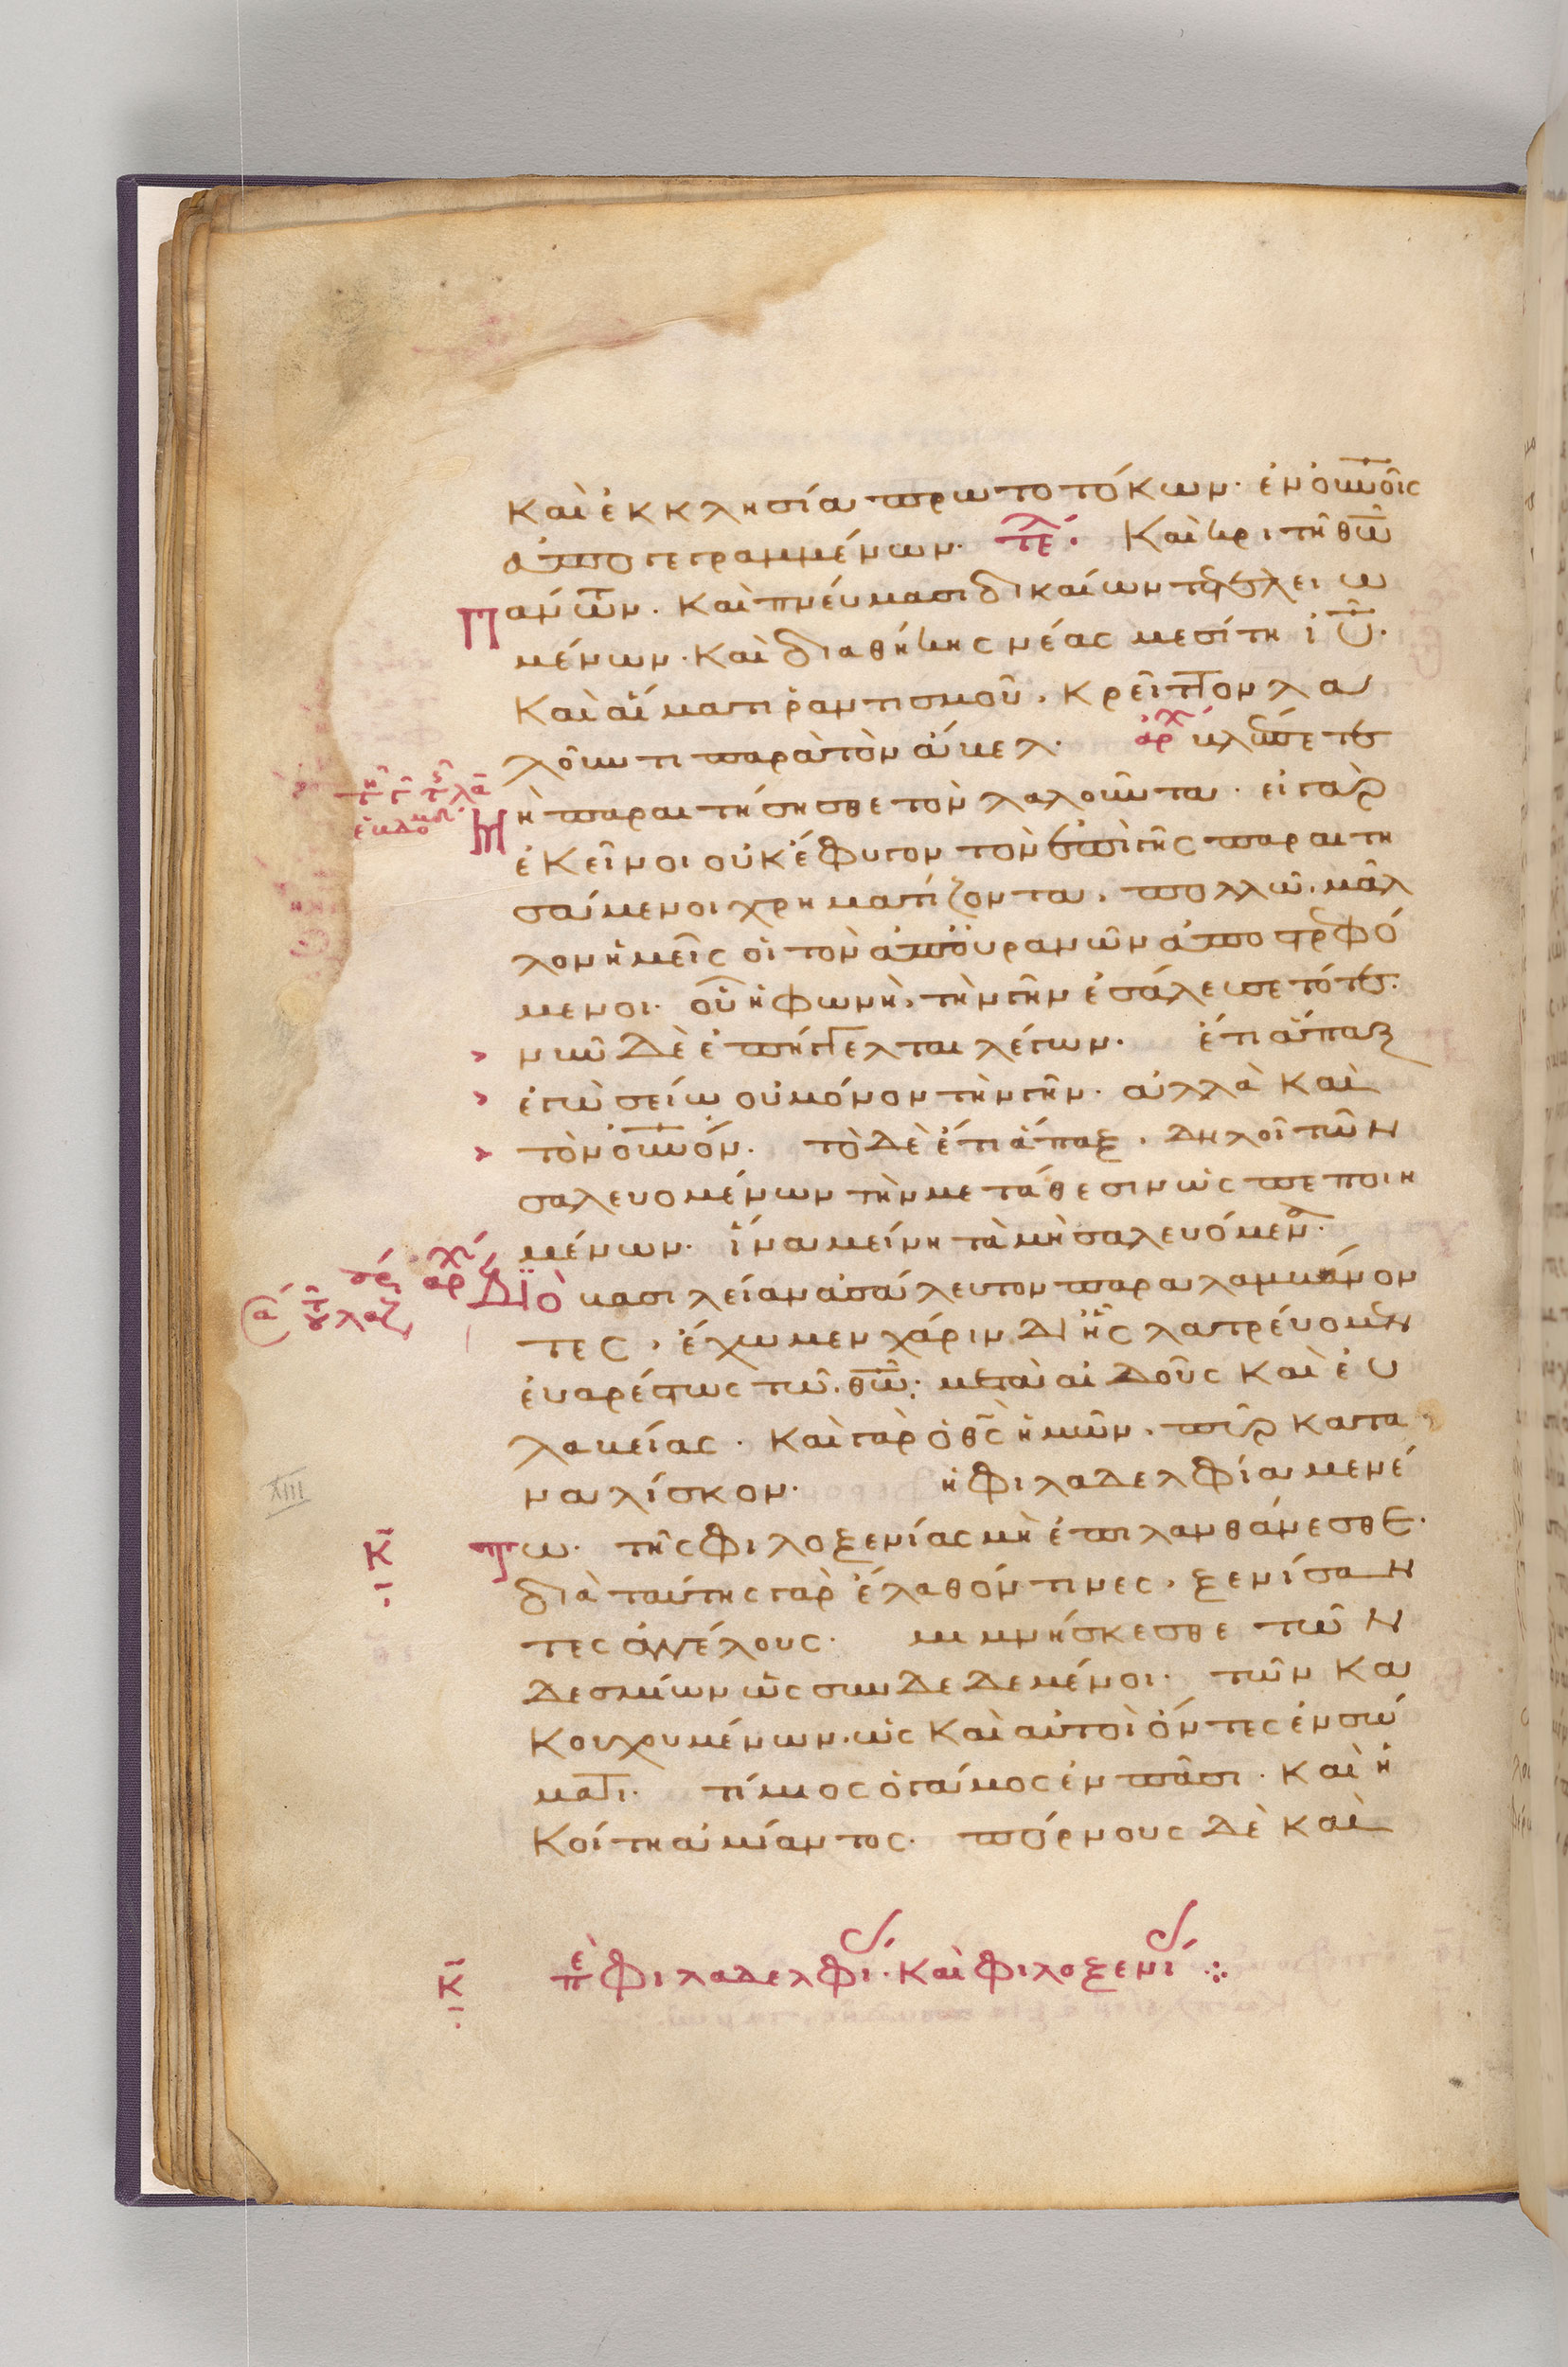 καὶ ἐκκλησία πρωτοτόκων· ἐν οὐνοῖς
ἀπογεγραμμένων· τελ· Καὶ κριτῆ θῶ
πάντων· καὶ πνεύμασι δικαίων τετελειω
μένων· καὶ διαθήκης νέας μεσίτη ἰῦ·
Καὶ αἵματι ῥαντισμοῦ, κρεῖττον λα
λοῦντι παρὰ τὸν ἄβελ· ἀρχ βλέπετε
μὴ παραιτήσησθε τὸν λαλοῦντα· εἰ γὰρ
ἐκεῖνοι οὐκ ἔφυγον τὸν ἐπὶ γῆς παραιτη
σάμενοι χρηματίζοντα, πολλῶ μᾶλ
λον ἡμεῖς οἱ τὸν ἀπ' οὐρανῶν ἀποστρεφό
μενοι· οὗ ἡ φωνὴ, τὴν γῆν ἐσάλευσε τότε·
> νῦν δὲ ἐπήγγελται λέγων· ἔτι ἅπαξ
> ἐγὼ σείω οὐ μόνον τὴν γῆν· ἀλλὰ καὶ
> τὸν οὐνόν· τὸ δὲ ἔτι ἅπαξ, δηλοῖ τῶν
σαλευομένων τὴν μετάθεσιν ὡς πεποιη
μένων· ἵνα μείνη τὰ μὴ σαλευόμενα·
ἀρχ Διὸ βασιλείαν ἀσάλευτον παραλαμβάνον
τες, ἔχωμεν χάριν δι ἧς λατρεύομεν
ἐυαρέστως τῶ θῶ· μετὰ αἰδοῦς καὶ ἐυ
λαβείας· καὶ γὰρ ὁ θς ἡμῶν, πῦρ κατα
ναλίσκον· ἡ φιλαδελφία μενέ
κ τω· τῆς φιλοξενίας μὴ ἐπιλανθάνεσθε·
διὰ ταύτης γὰρ ἔλαθόν τινες, ξενίσαν
τες ἀγγέλους· μιμνήσκεσθε τῶν
δεσμίων ὡς συνδεδεμένοι· τῶν κα
κουχουμένων· ὡς καὶ αὐτοὶ ὄντες ἐν σώ
ματι· τίμιος ὁ γάμος ἐν πᾶσι· καὶ ἡ
κοίτη ἀμίαντος· πόρνους δὲ καὶ
κ πε φιλαδελφί· καὶ φιλοξενί
XIII